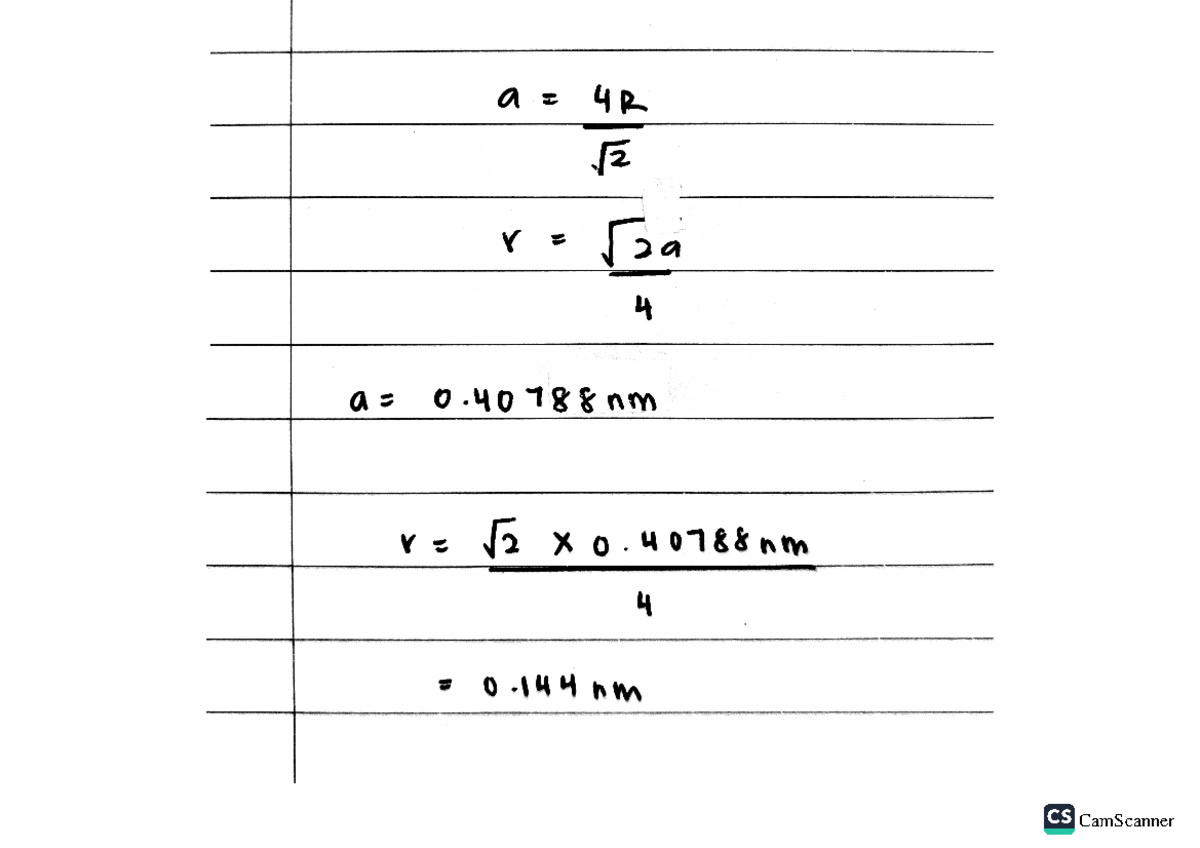 a = 4R
√2
r = √2a
4
a = 0.40788nm
r = √2 × 0.40788nm
4
= 0.144 nm
CS CamScanner